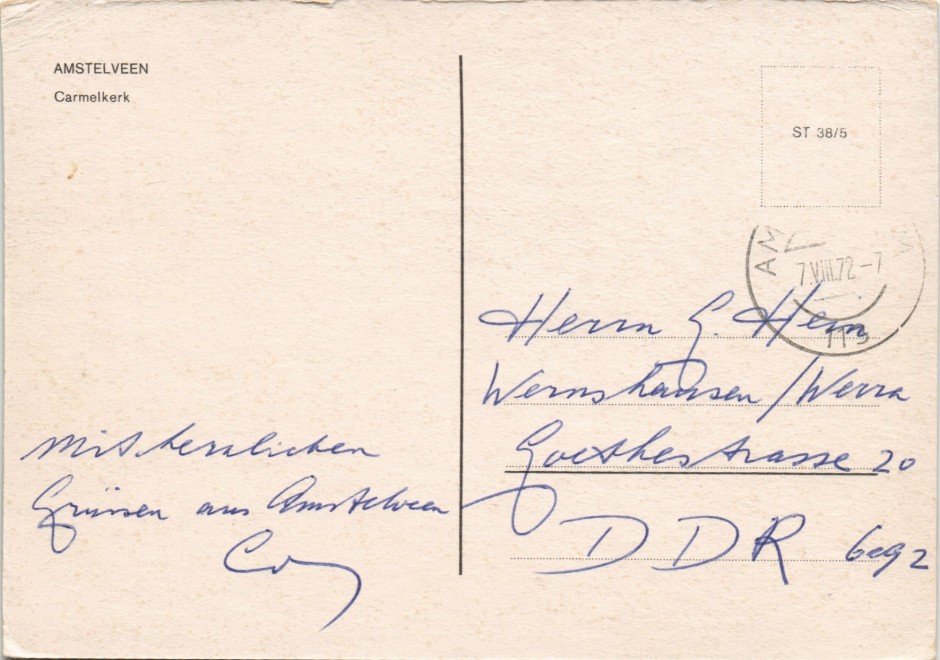 AMSTELVEEN
Carmelkerk
ST 38/5
7.VIII.72.-7
Herrn G. Hern
Wernshausen / Werra
Goethestrasse 20
DDR 6092
Mit herzlichen
Grüssen aus Amstelveen